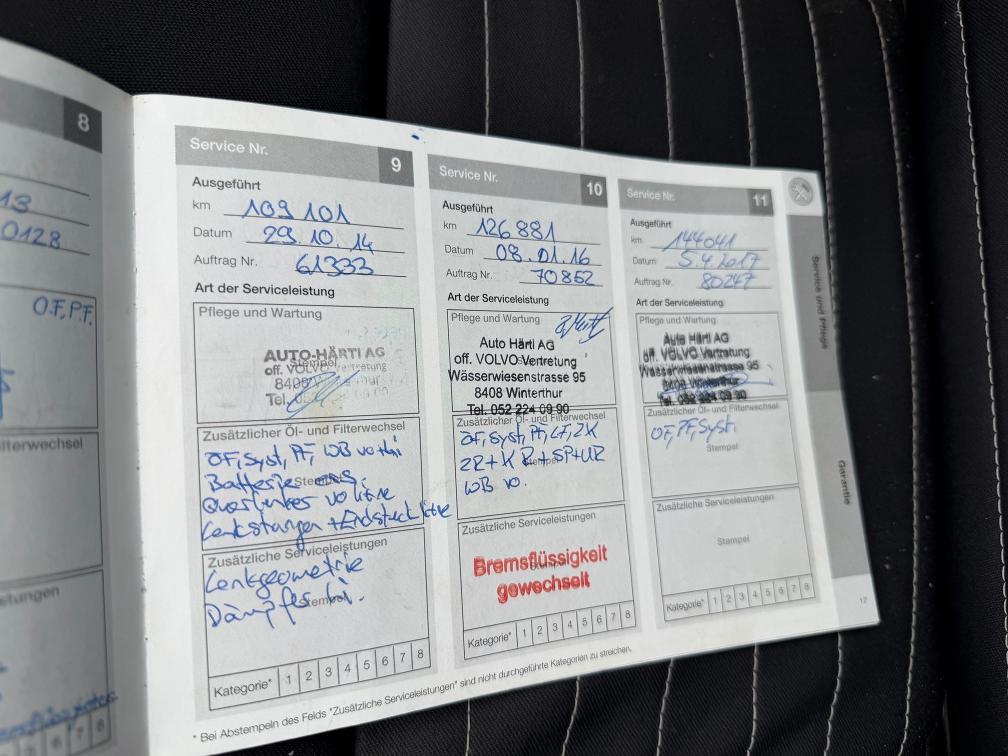 8
13
0128
O.F, P.F.
Filterwechsel
Service Nr. 9
Ausgeführt
km 109 101
Datum 29.10.14
Auftrag Nr. 61333
Art der Serviceleistung
Pflege und Wartung
AUTO-HÄRTI AG
off. VOLVO Vertretung
Stempel
Tel.
Zusätzlicher Öl- und Filterwechsel
ÖF, Syst, PF, WB
Batterie
Stempel
Querlenker
Lenkstangen + Endstück
Zusätzliche Serviceleistungen
Lenkgeometrie
Dämpfer hi.
Stempel
Kategorie* 1 2 3 4 5 6 7 8
Service Nr. 10
Ausgeführt
km 126 881
Datum 08.01.16
Auftrag Nr. 70852
Art der Serviceleistung
Pflege und Wartung
Auto Härti AG
off. VOLVO Vertretung
Wässerwiesenstrasse 95
8408 Winterthur
Tel. 052 224 09 90
Zusätzlicher Öl- und Filterwechsel
ÖF, Syst, PF, LF, ZK
ZR + K R + SP + UR
Stempel
WB vo.
Zusätzliche Serviceleistungen
Bremsflüssigkeit
gewechselt
Kategorie* 1 2 3 4 5 6 7 8
Service Nr. 11
Ausgeführt
km 144041
Datum 5.4.2017
Auftrag Nr. 80247
Art der Serviceleistung
Pflege und Wartung
Auto Härti AG
off. VOLVO Vertretung
Wässerwiesenstrasse 95
8408 Winterthur
Tel. 052 224 09 90
Zusätzlicher Öl- und Filterwechsel
ÖF, PF, Syst.
Stempel
Zusätzliche Serviceleistungen
Stempel
Kategorie* 1 2 3 4 5 6 7 8
* Bei Abstempeln des Felds "Zusätzliche Serviceleistungen" sind nicht durchgeführte Kategorien zu streichen.
Service und Pflege
Garantie
17